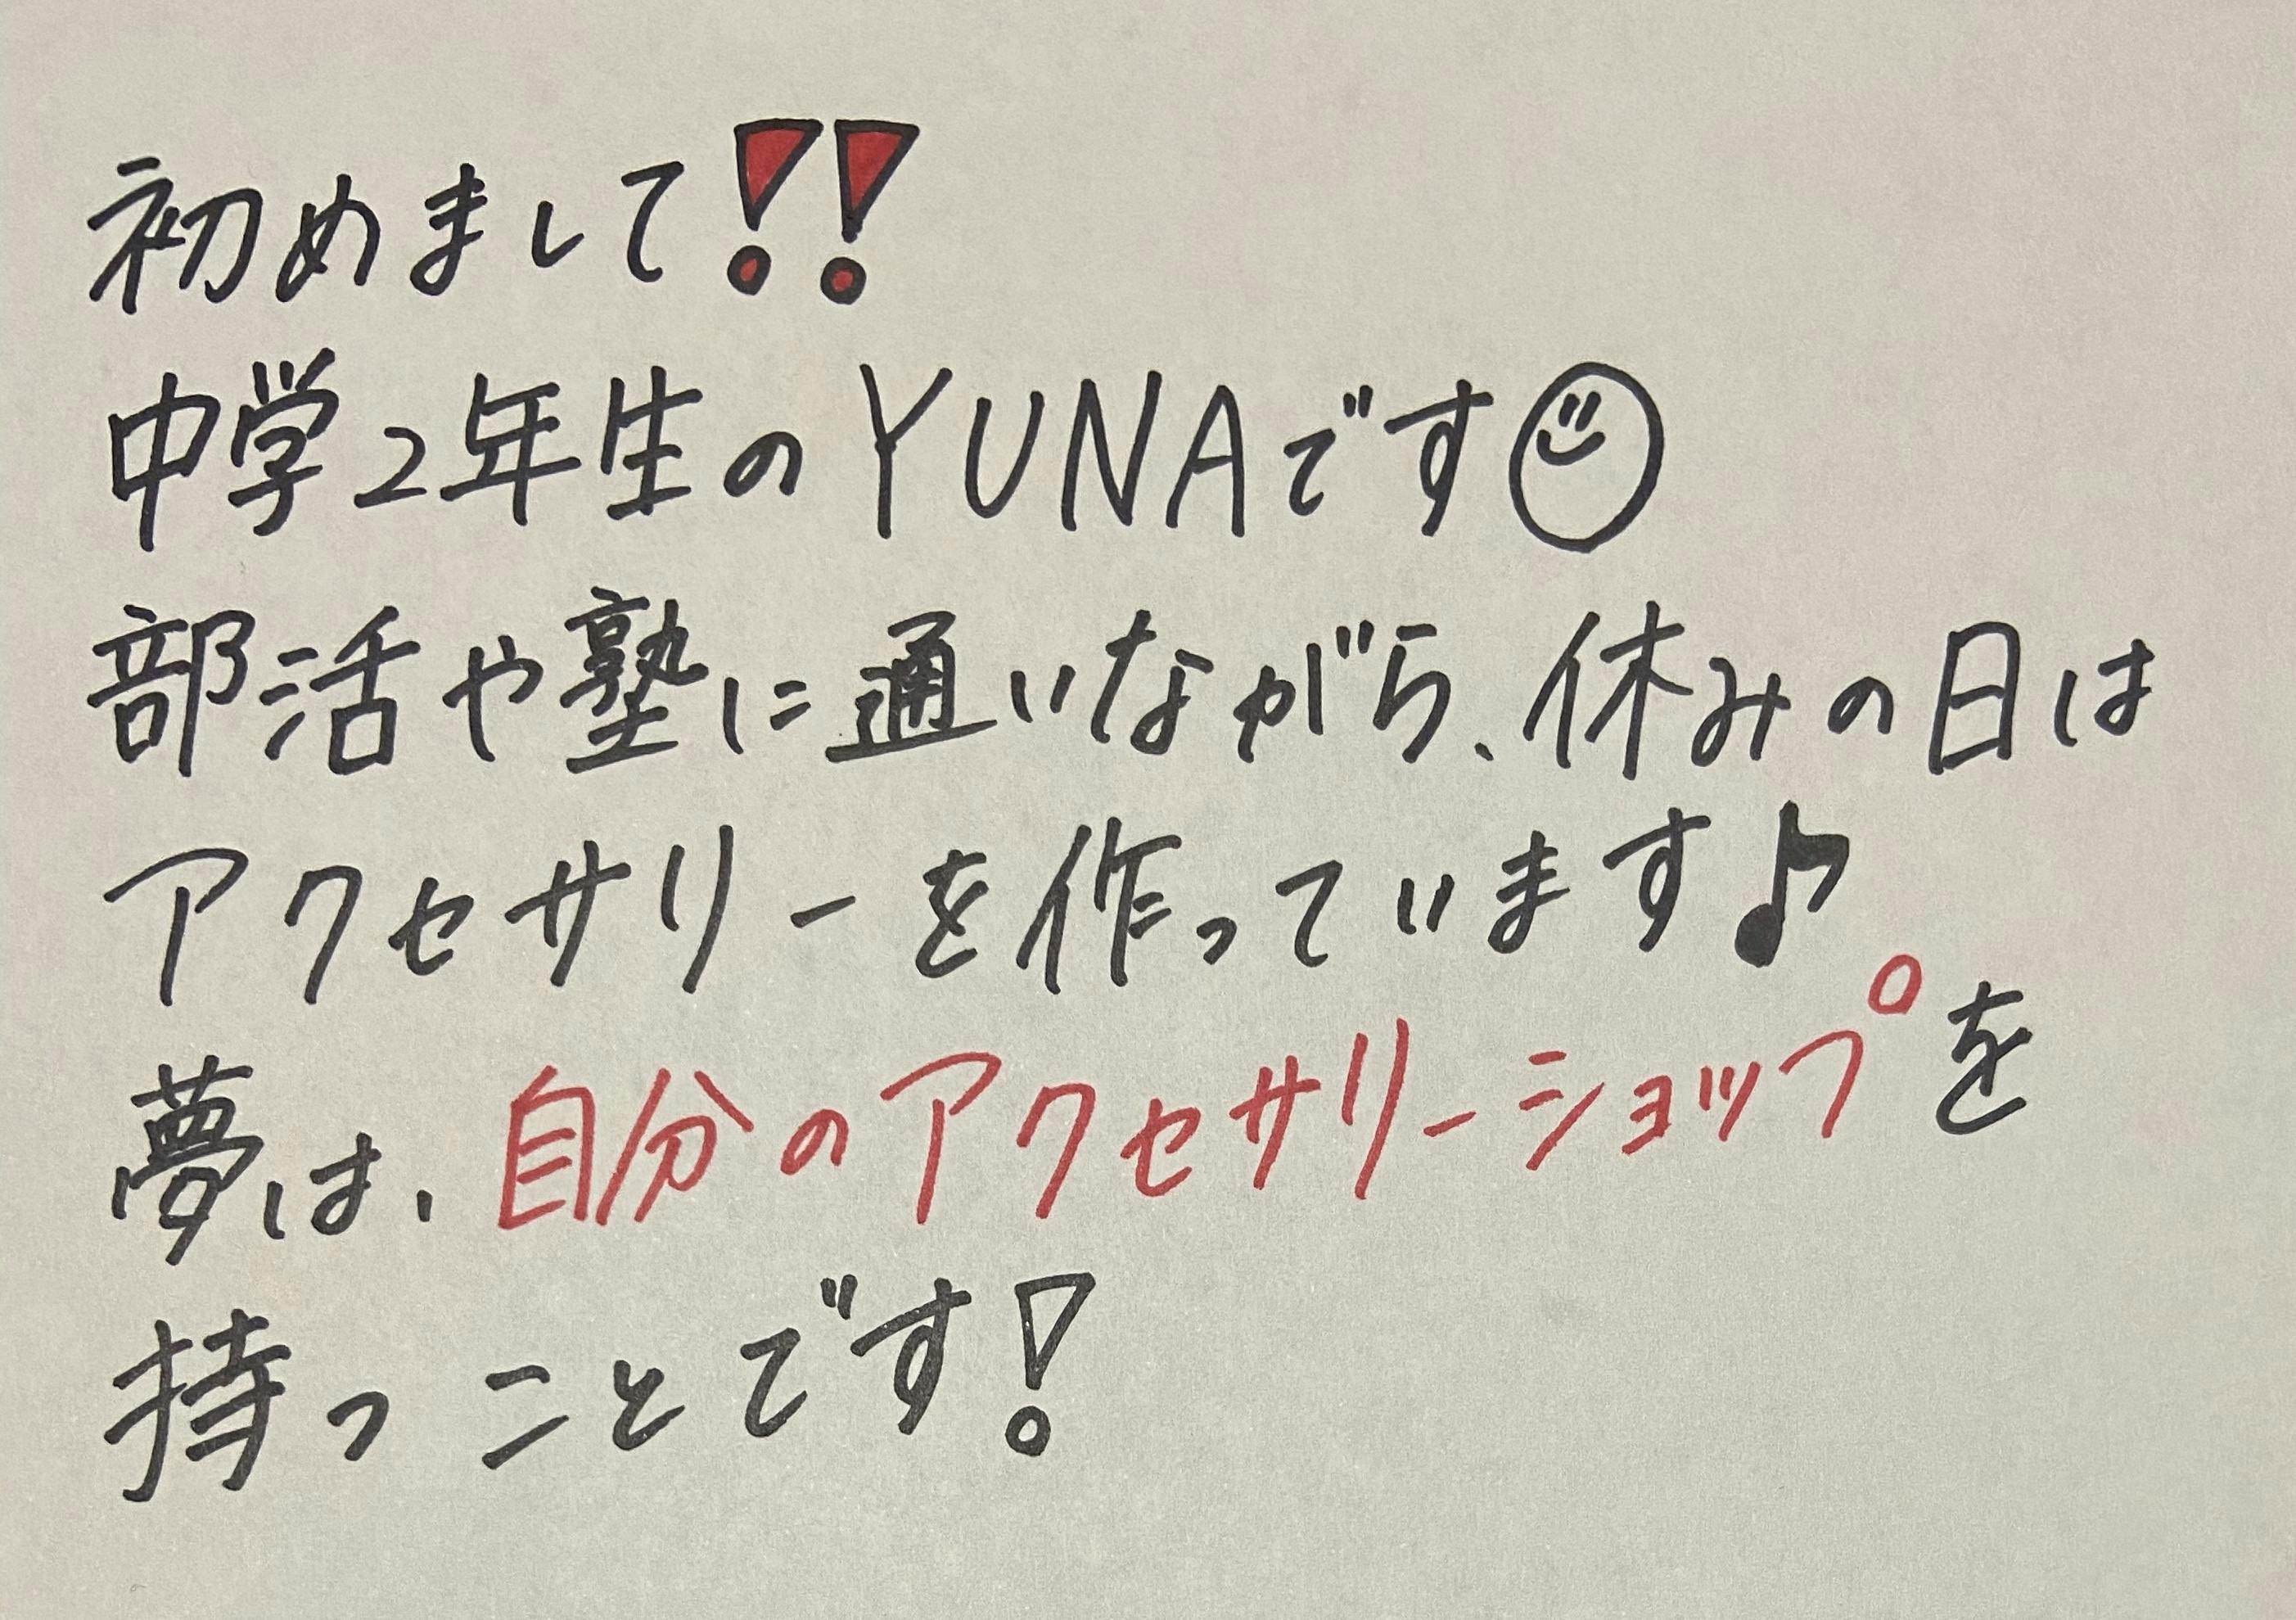 初めまして!!
中学2年生のYUNAです☺
部活や塾に通いながら、休みの日は
アクセサリーを作っています♪
夢は、自分のアクセサリーショップを
持つことです!